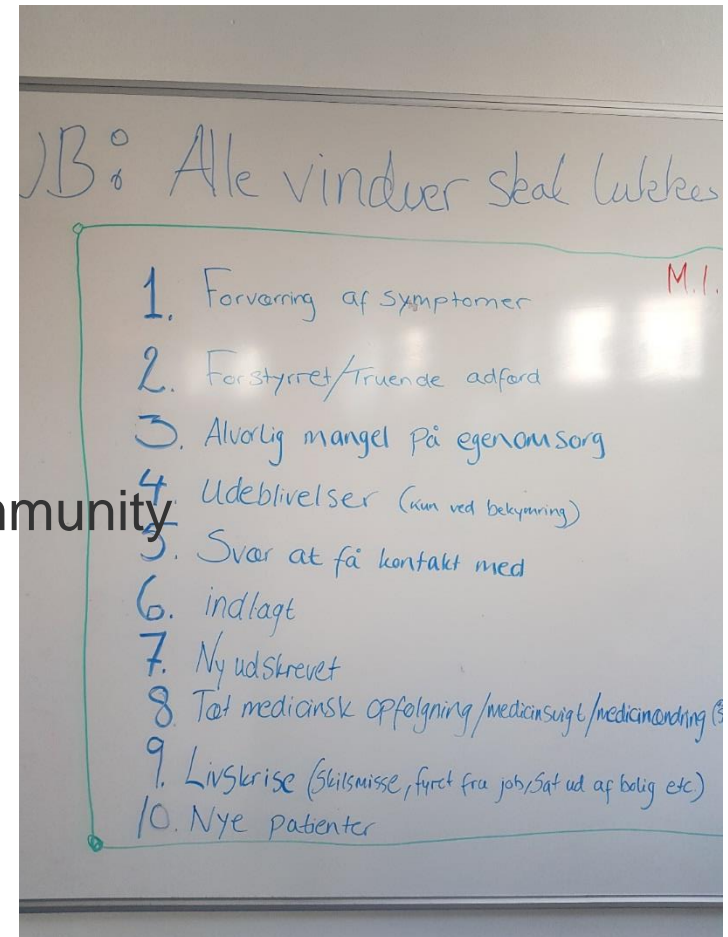 B: Alle vinduer skal lukkes
M.I.
1. Forværring af symptomer
2. Forstyrret/Truende adfærd
3. Alvorlig mangel på egenomsorg
4. Udeblivelser (kun ved bekymring)
munity
5. Svær at få kontakt med
6. indlagt
7. Nyudskrevet
8. Tæt medicinsk opfølgning/medicinsvigt/medicinændring (3
9. Livskrise (skilsmisse, fyret fra job, Sat ud af bolig etc.)
10. Nye patienter